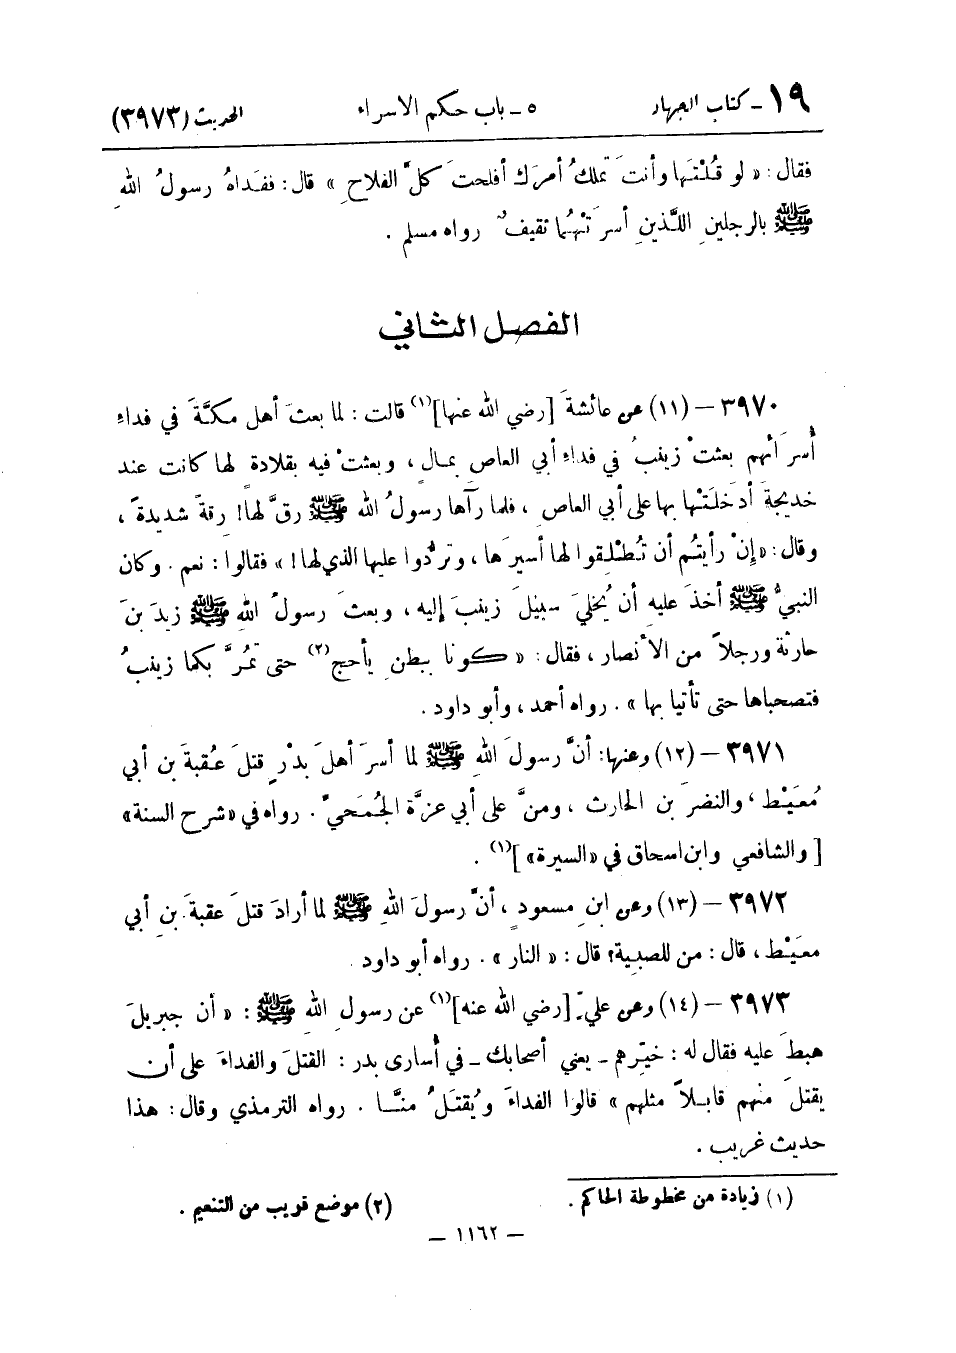 ١٩ - كتاب الجهاد ٥ - باب حكم الاسراء الحديث (٣٩٧٣)
فقال: « لو قُلْتَها وأنتَ تملكُ أمرَك أفلحتَ كلَّ الفلاحِ » قال: ففداهُ رسولُ اللهِ
ﷺ بالرجلينِ اللَّذينِ أسرَتْهُما ثقيفٌ رواه مسلم .
الفصل الثاني
٣٩٧٠ - (١١) عن عائشةَ [رضي الله عنها](١) قالت: لما بعثَ أهل مكَّةَ في فداءِ
أُسرَائهم بعثتْ زينبُ في فداءِ أبي العاص بمالٍ، وبعثتْ فيه بقلادة لها كانت عند
خديجةَ أدخلَتْها بها على أبي العاص، فلما رآها رسولُ الله ﷺ رقَّ لها! رقةً شديدةً،
وقال: «إنْ رأيتُم أن تُطْلِقوا لها أسيرَها، وتردُّوا عليها الذي لها!» فقالوا: نعم. وكان
النبيُّ ﷺ أخذَ عليه أن يُخليَ سبيلَ زينبَ إليه، وبعثَ رسولُ اللهِ ﷺ زيدَ بنَ
حارثة ورجلاً من الأنصار، فقال: « كونا ببطنِ يأحج(٢) حتى تمُرَّ بكما زينبُ
فتصحباها حتى تأتيا بها ». رواه أحمد، وأبو داود.
٣٩٧١ - (١٢) وعنها: أنَّ رسولَ اللهِ ﷺ لما أسرَ أهلَ بدْرٍ قتلَ عُقبةَ بن أبي
مُعَيْط، والنضرَ بن الحارث، ومنَّ على أبي عزَّة الجُمَحيِّ. رواه في «شرح السنة»
[والشافعي وابن اسحاق في «السيرة»](١) .
٣٩٧٢ - (١٣) وعن ابنِ مسعودٍ، أنَّ رسولَ اللهِ ﷺ لما أرادَ قتلَ عقبةَ بنِ أبي
معَيْط، قال: من للصبية؟ قال: « النار ». رواه أبو داود .
٣٩٧٣ - (١٤) وعن عليّ [رضي الله عنه](١) عن رسولِ اللهِ ﷺ: « أن جبريلَ
هبطَ عليه فقال له: خيِّرهم - يعني أصحابك - في أُسارى بدر: القتلَ والفداءَ على أن
يقتلَ منهم قابلاً مثلهم » قالوا الفداءَ ويُقتَلُ منَّا. رواه الترمذي وقال: هذا
حديث غريب .
(١) زيادة من مخطوطة الحاكم . (٢) موضع قريب من التنعيم .
- ١١٦٢ -